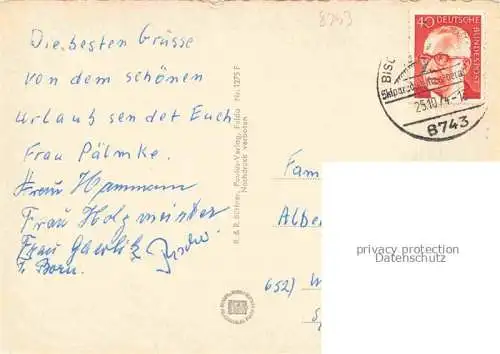 Die besten Grüsse
von dem schönen
Urlaub sendet Euch
Frau Pälmke.
Frau Hammann
Frau Holzmeister
Frau Gawlik
Fr. Born.
R. & R. Büttner, Foodes-Verlag, Fulda Nr. 1275 F
Nachdruck verboten
8743
40 DEUTSCHE BUNDESPOST
BISC
25.10.74-1
8743
Fam
Albe
6521 W
privacy protection
Datenschutz